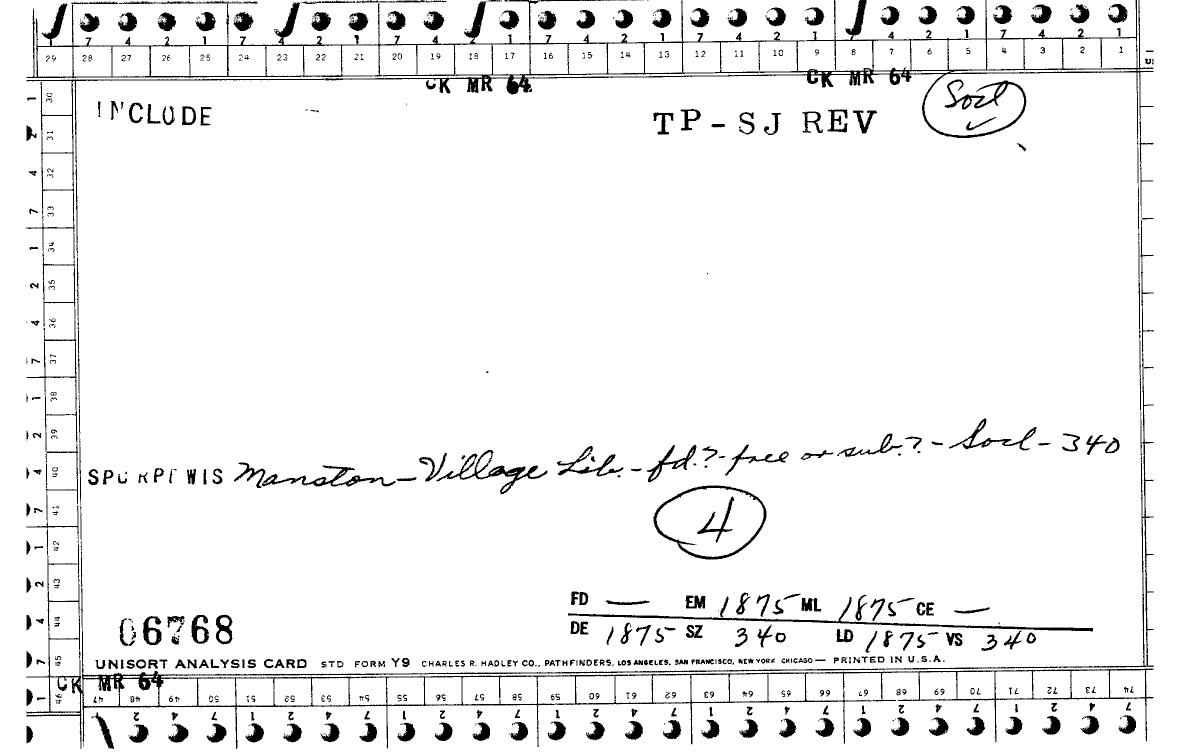 7 4 2 1 7 4 2 1 7 4 2 1 7 4 2 1 7 4 2 1 7 4 2 1 7 4 2 1
29 28 27 26 25 24 23 22 21 20 19 18 17 16 15 14 13 12 11 10 9 8 7 6 5 4 3 2 1
CK MR 64 CK MR 64
INCLUDE TP-SJ REV Socl
1 30
2 31
4 32
7 33
1 34
2 35
4 36
7 37
1 38
2 39
4 40
7 41
1 42
2 43
4 44
7 45
1 46
WIS Manston-Village Lib.-fd.?-free or sub.?-Socl-340
4
FD — EM 1875 ML 1875 CE —
DE 1875 SZ 340 LD 1875 VS 340
06768
UNISORT ANALYSIS CARD STD FORM Y9 CHARLES R. HADLEY CO., PATHFINDERS, LOS ANGELES, SAN FRANCISCO, NEW YORK CHICAGO — PRINTED IN U.S.A.
CK MR 64
47 48 49 50 51 52 53 54 55 56 57 58 59 60 61 62 63 64 65 66 67 68 69 70 71 72 73 74
2 4 7 1 2 4 7 1 2 4 7 1 2 4 7 1 2 4 7 1 2 4 7 1 2 4 7